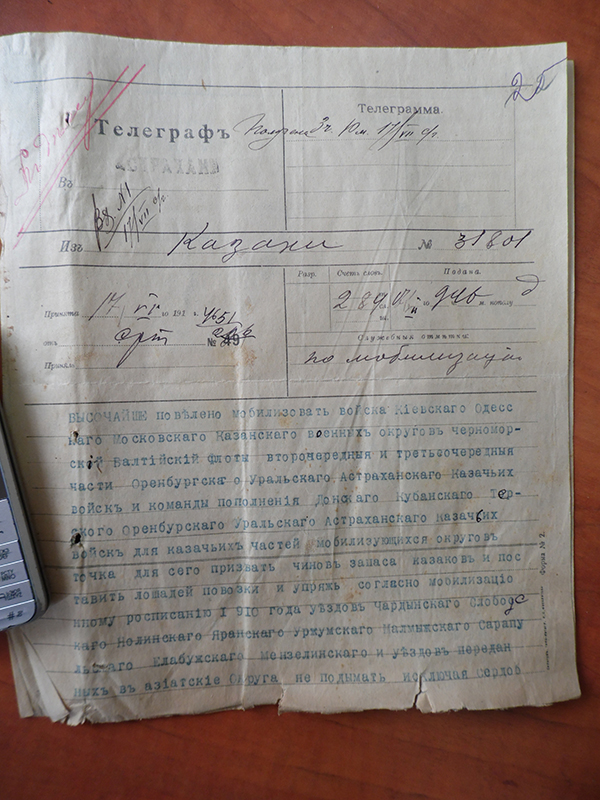 Телеграмма.
Телеграфъ
17/VII
Въ
Вх. №1
17/VII
Изъ Казани № 31801
Разр. Счетъ словъ. Подана.
Принята 17 VII го 191 г.
Служебныя отмѣтки:
отъ №
по мобилизаціи
Принялъ
ВЫСОЧАЙШЕ повѣлено мобилизовать войска Кіевскаго Одесс
каго Московскаго Казанскаго военныхъ округовъ черномор-
скій Балтійскій флоты второчередныя и третьочередныя
части Оренбургска о Уральскаго Астраханскаго Казачьих
войскъ и команды пополненія Донскаго Кубанскаго Тер-
скаго Оренбургскаго Уральскаго Астраханскаго казачьих
войскъ для казачьихъ частей мобилизующихся округовъ
точка для сего призвать чиновъ запаса казаковъ и пос
тавить лошадей повозки и упряжь согласно мобилизаціо
нному росписанію 1910 года уѣздовъ Чардынскаго Слободс
каго Нолинскаго Яранскаго Уржумскаго Малмыжскаго Сарапу
льскаго Елабужскаго Мензелинскаго и уѣздовъ передан
ныхъ въ азіатскіе Округа не подымать исключая Сердоб
Форма № 2.